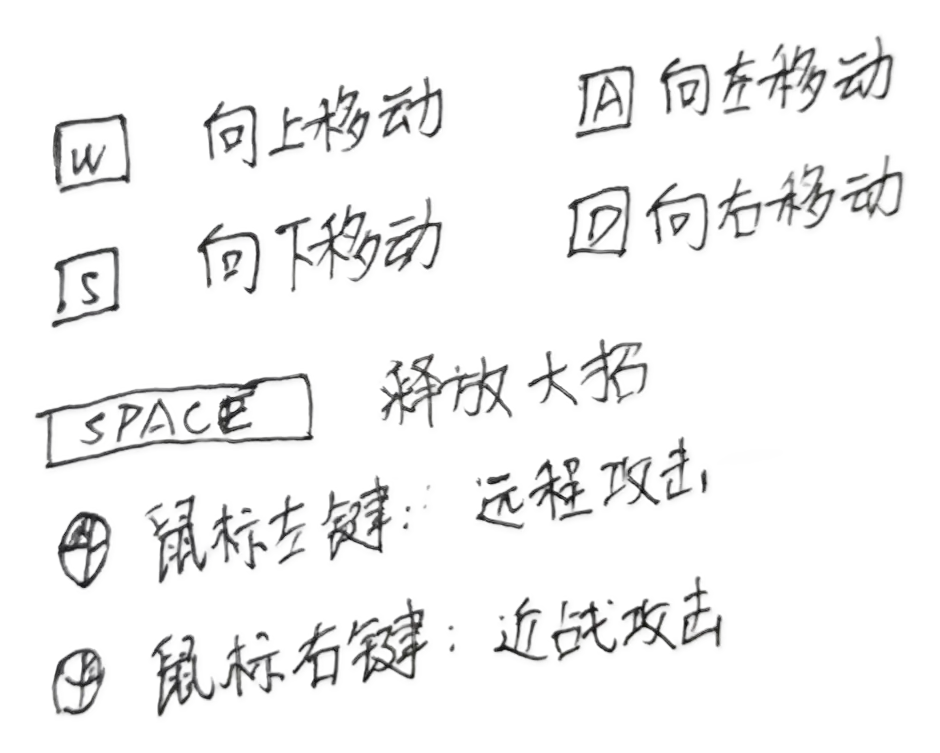 W 向上移动 A 向左移动
S 向下移动 D 向右移动
SPACE 释放大招
鼠标左键: 远程攻击
鼠标右键: 近战攻击